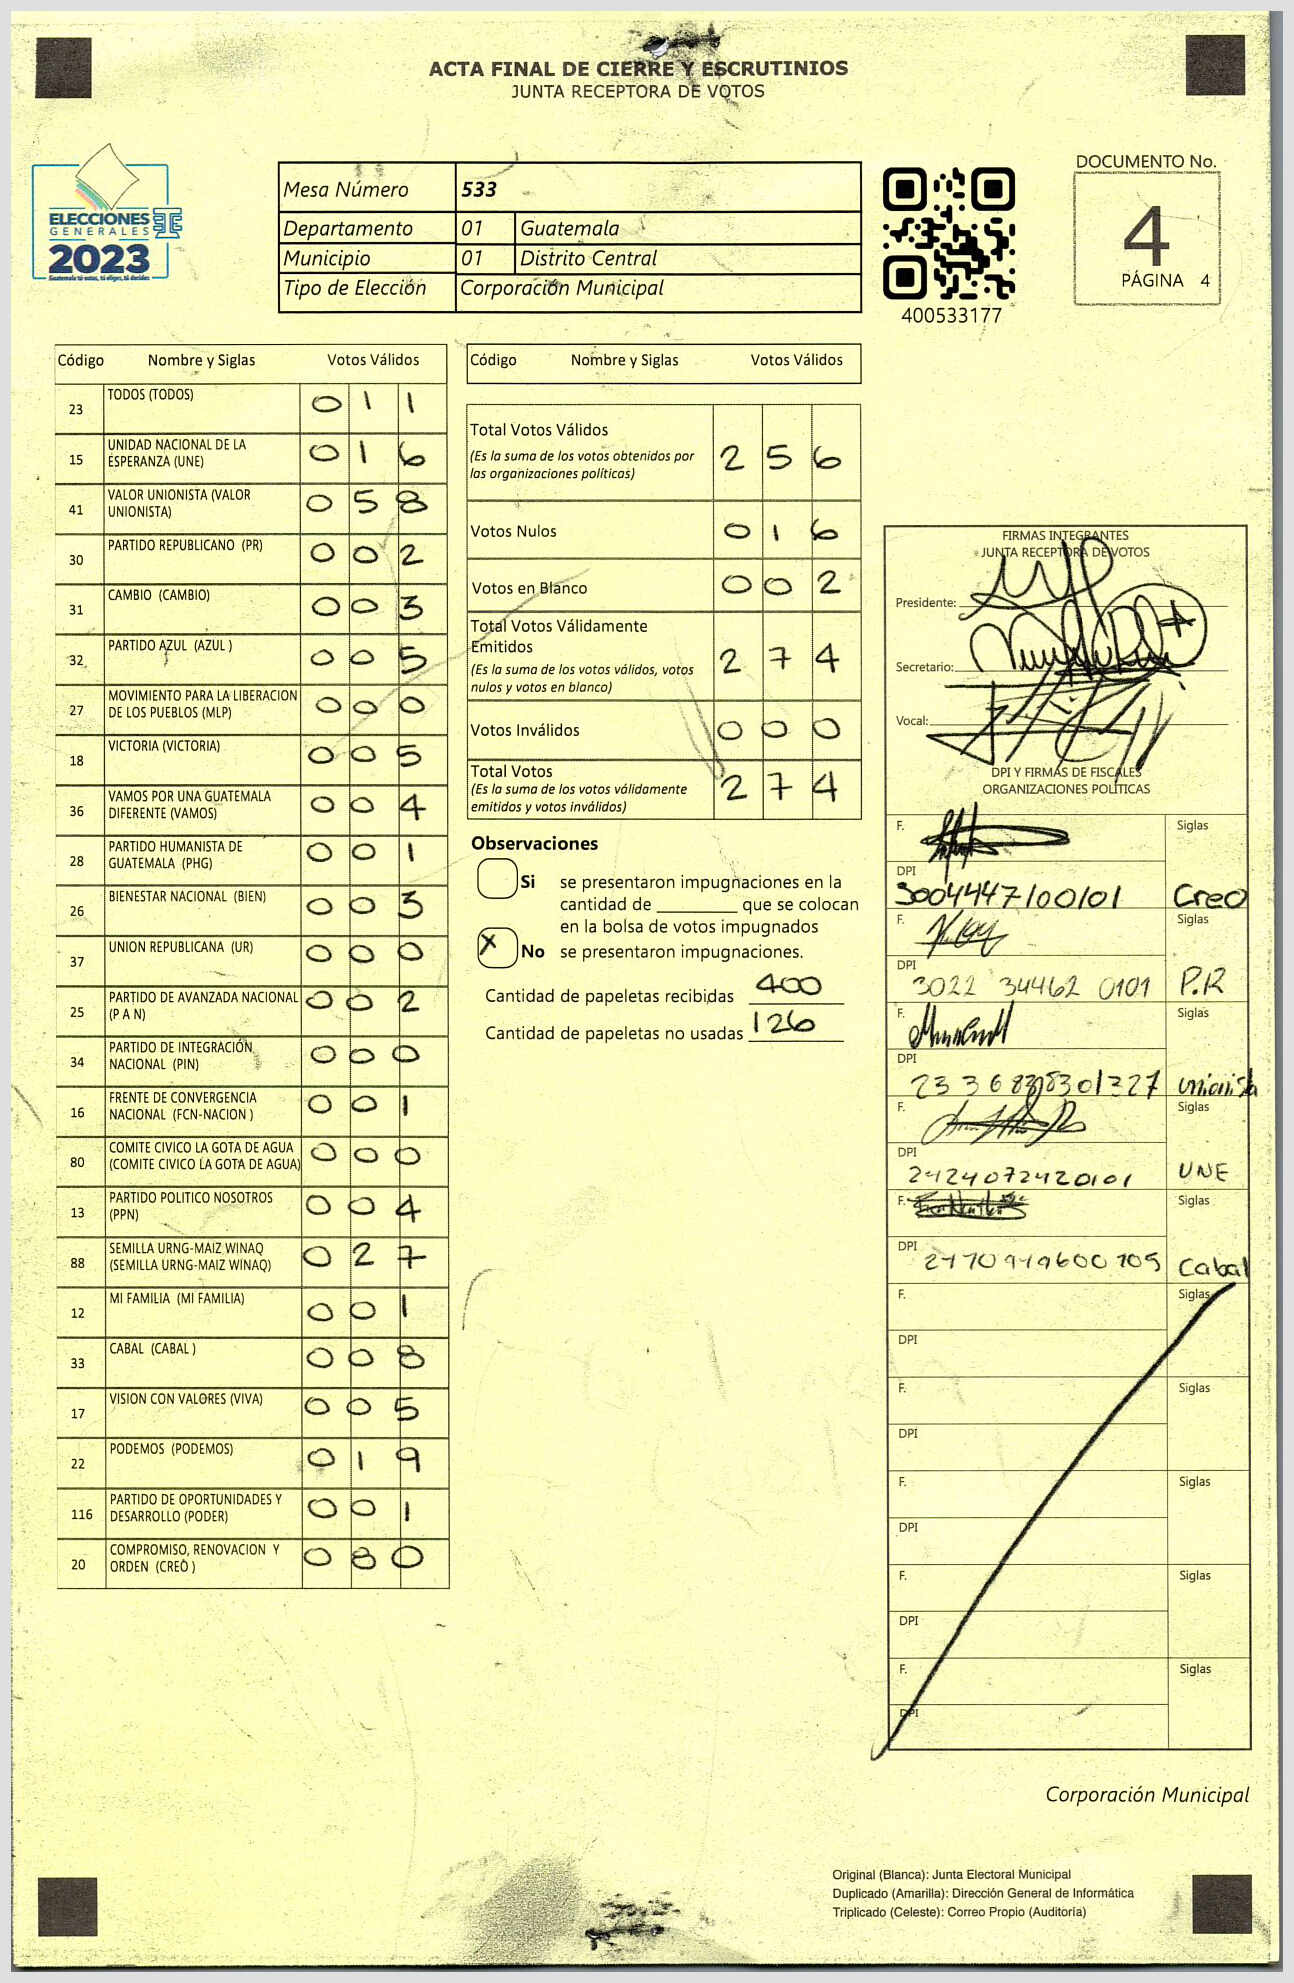 ACTA FINAL DE CIERRE Y ESCRUTINIOS
JUNTA RECEPTORA DE VOTOS
ELECCIONES
GENERALES
2023
Guatemala tú votas, tú eliges, tú decides
Mesa Número 533
Departamento 01 Guatemala
Municipio 01 Distrito Central
Tipo de Elección Corporación Municipal
400533177
DOCUMENTO No.
4
PÁGINA 4
Código Nombre y Siglas Votos Válidos
23 TODOS (TODOS) 0 1 1
15 UNIDAD NACIONAL DE LA ESPERANZA (UNE) 0 1 6
41 VALOR UNIONISTA (VALOR UNIONISTA) 0 5 8
30 PARTIDO REPUBLICANO (PR) 0 0 2
31 CAMBIO (CAMBIO) 0 0 3
32 PARTIDO AZUL (AZUL ) 0 0 5
27 MOVIMIENTO PARA LA LIBERACION DE LOS PUEBLOS (MLP) 0 0 0
18 VICTORIA (VICTORIA) 0 0 5
36 VAMOS POR UNA GUATEMALA DIFERENTE (VAMOS) 0 0 4
28 PARTIDO HUMANISTA DE GUATEMALA (PHG) 0 0 1
26 BIENESTAR NACIONAL (BIEN) 0 0 3
37 UNION REPUBLICANA (UR) 0 0 0
25 PARTIDO DE AVANZADA NACIONAL (P A N) 0 0 2
34 PARTIDO DE INTEGRACIÓN NACIONAL (PIN) 0 0 0
16 FRENTE DE CONVERGENCIA NACIONAL (FCN-NACION ) 0 0 1
80 COMITE CIVICO LA GOTA DE AGUA (COMITE CIVICO LA GOTA DE AGUA) 0 0 0
13 PARTIDO POLITICO NOSOTROS (PPN) 0 0 4
88 SEMILLA URNG-MAIZ WINAQ (SEMILLA URNG-MAIZ WINAQ) 0 2 7
12 MI FAMILIA (MI FAMILIA) 0 0 1
33 CABAL (CABAL ) 0 0 8
17 VISION CON VALORES (VIVA) 0 0 5
22 PODEMOS (PODEMOS) 0 1 9
116 PARTIDO DE OPORTUNIDADES Y DESARROLLO (PODER) 0 0 1
20 COMPROMISO, RENOVACION Y ORDEN (CREO ) 0 8 0
Código Nombre y Siglas Votos Válidos
Total Votos Válidos 2 5 6
(Es la suma de los votos obtenidos por
las organizaciones políticas)
Votos Nulos 0 1 6
Votos en Blanco 0 0 2
Total Votos Válidamente
Emitidos 2 7 4
(Es la suma de los votos válidos, votos
nulos y votos en blanco)
Votos Inválidos 0 0 0
Total Votos 2 7 4
(Es la suma de los votos válidamente
emitidos y votos inválidos)
Observaciones
Si se presentaron impugnaciones en la
cantidad de ________ que se colocan
en la bolsa de votos impugnados
X No se presentaron impugnaciones.
Cantidad de papeletas recibidas 400
Cantidad de papeletas no usadas 126
FIRMAS INTEGRANTES
JUNTA RECEPTORA DE VOTOS
Presidente:
Secretario:
Vocal:
DPI Y FIRMAS DE FISCALES
ORGANIZACIONES POLÍTICAS
F. Siglas
DPI
3004447100101 Creo
F. Siglas
DPI
3022 34462 0101 P.R
F. Siglas
DPI
unionista
F. Siglas
DPI
2424072420101 UNE
F. Siglas
DPI
Cabal
F. Siglas
DPI
F. Siglas
DPI
F. Siglas
DPI
F. Siglas
DPI
F. Siglas
DPI
Corporación Municipal
Original (Blanca): Junta Electoral Municipal
Duplicado (Amarilla): Dirección General de Informática
Triplicado (Celeste): Correo Propio (Auditoría)